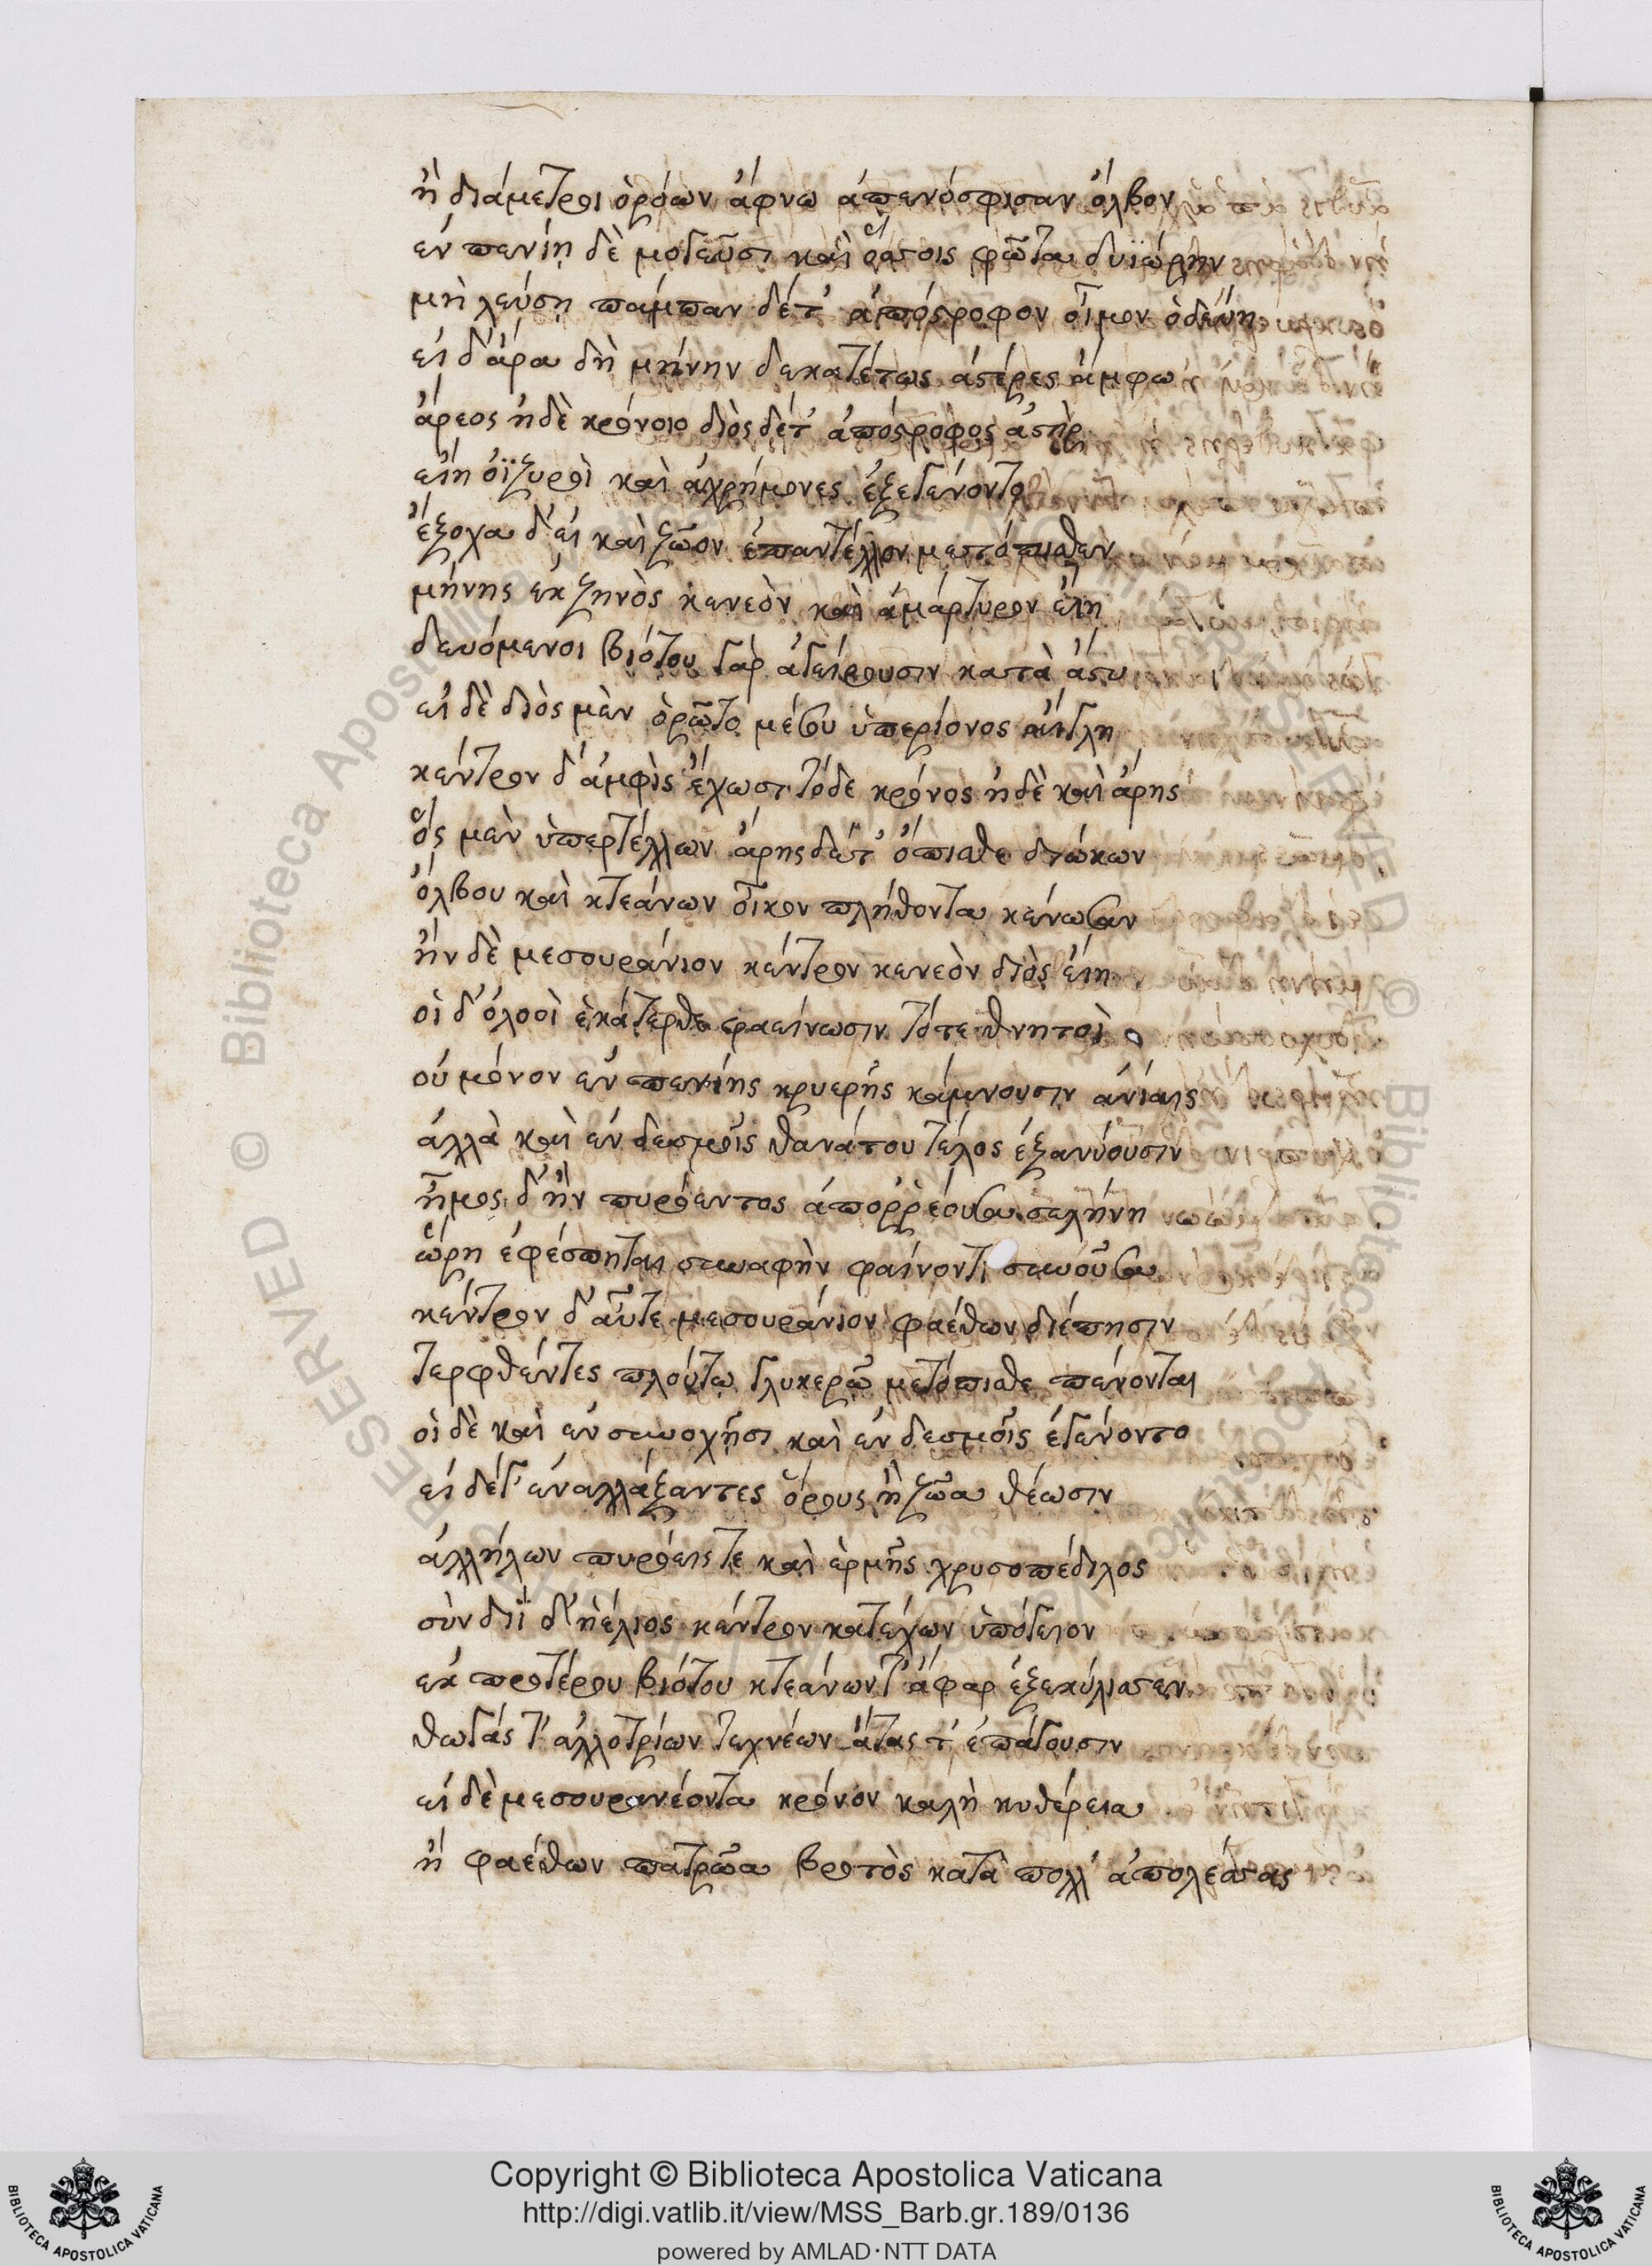 ἢ διάμετροι ὁρόων ἄφνω ἀπενόσφισαν ὄλβον
ἐν πενίῃ δὲ μογεῦσι καὶ ὅσσοις φῶτα δυϊώρην
μὴ λεύσῃ πάμπαν δέτ' ἀπόστροφον οἶμον ὁδεύῃ
εἰ δ' ἄρα δὴ μήνην δεκατέτως ἀστέρες ἄμφω
ἄρεος ἠδὲ κρόνοιο διὸς δέτ' ἀπόστροφος ἀστὴρ
εἴη ὀϊζυροὶ καὶ ἀχρήμονες ἐξεγένοντο
ἔξοχα δ' εἰ καὶ ζῶον ἐπαντέλλον μετόπισθεν
μήνης ἐκ ζηνὸς κενεὸν καὶ ἀμάρτυρον εἴη
δευόμενοι βιότου γὰρ ἀγείρουσιν κατὰ ἄστυ
εἰ δὲ διὸς μὲν ὁρῶτο μέσου ὑπερίονος αἴγλη
κέντρον δ' ἀμφὶς ἔχωσι τόδε κρόνος ἠδὲ καὶ ἄρης
ὃς μὲν ὑπερτέλλων ἄρης δέτ' ὄπισθε διώκων
ὄλβου καὶ κτεάνων οἶκον πλήθοντα κένωσαν
ἢν δὲ μεσουράνιον κέντρον κενεὸν διὸς εἴη
οἱ δ' ὀλοοὶ ἑκάτερθε φαείνωσιν τότε θνητοὶ
οὐ μόνον ἐν πενίης κρυερῆς κάμνουσιν ἀνίαις
ἀλλὰ καὶ ἐν δεσμοῖς θανάτου τέλος ἐξανύουσιν
ἦμος δ' ἢν πυρόεντος ἀπορρέουσα σελήνη
ὥρη ἐφέσπηται συναφὴν φαίνοντι συνοῦσα
κέντρον δ' αὖτε μεσουράνιον φαέθων διέπησιν
τερφθέντες πλούτω γλυκερῶ μετόπισθε πένονται
οἱ δὲ καὶ ἐν συνοχῇσι καὶ ἐν δεσμοῖς ἐγένοντο
εἰ δέγ' ἐναλλάξαντες ὅρους ἢ ζῶα θέωσιν
ἀλλήλων πυρόεις τε καὶ ἑρμῆς χρυσοπέδιλος
σὺν διῒ δ' ἠέλιος κέντρον κατέχων ὑπόγειον
ἐκ προτέρου βιότου κτεάνων τ' ἄφαρ ἐξεκύλισεν
θωγάς τ' ἀλλοτρίων τεχνέων ἄτας τ' ἐπάγουσιν
εἰ δὲ μεσουρανέοντα κρόνον καλὴ κυθέρεια
ἢ φαέθων πατρῶα βροτὸς κατὰ πολλ' ἀπολέσσας
Copyright © Biblioteca Apostolica Vaticana
http://digi.vatlib.it/view/MSS_Barb.gr.189/0136
powered by AMLAD·NTT DATA